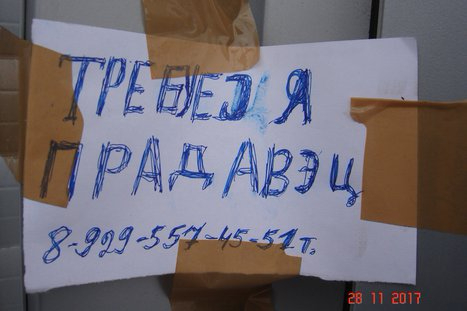 ПРАДАВЭЦ
8-929-557-45-51т.
28 11 2017